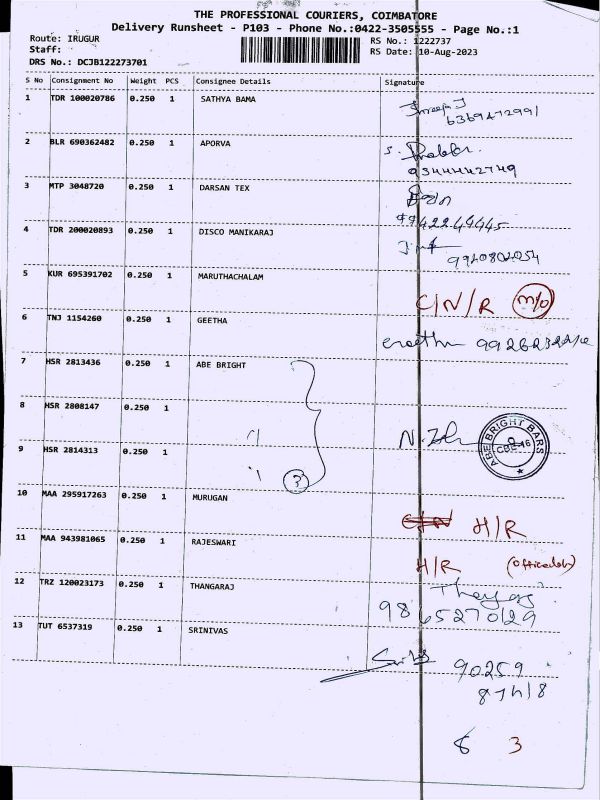 THE PROFESSIONAL COURIERS, COIMBATORE
Delivery Runsheet - P103 - Phone No.:0422-3505555 - Page No.:1
Route: IRUGUR RS No.: 1222737
Staff: RS Date: 10-Aug-2023
DRS No.: DCJB122273701
S No Consignment No Weight PCS Consignee Details Signature
1 TDR 100020786 0.250 1 SATHYA BAMA
6369472991
2 BLR 690362482 0.250 1 APORVA
9344442749
3 MTP 3048720 0.250 1 DARSAN TEX
9942244445
4 TDR 200020893 0.250 1 DISCO MANIKARAJ
5 KUR 695391702 0.250 1 MARUTHACHALAM
C/N/R M/O
6 TNJ 1154260 0.250 1 GEETHA
7 HSR 2813436 0.250 1 ABE BRIGHT
8 HSR 2808147 0.250 1 "
ABE BRIGHT BARS
CBE-16
9 HSR 2814313 0.250 1 "
3
10 MAA 295917263 0.250 1 MURUGAN
H/R
11 MAA 943981065 0.250 1 RAJESWARI
H/R
12 TRZ 120023173 0.250 1 THANGARAJ
9865270129
13 TUT 6537319 0.250 1 SRINIVAS
90259
87418
8 3